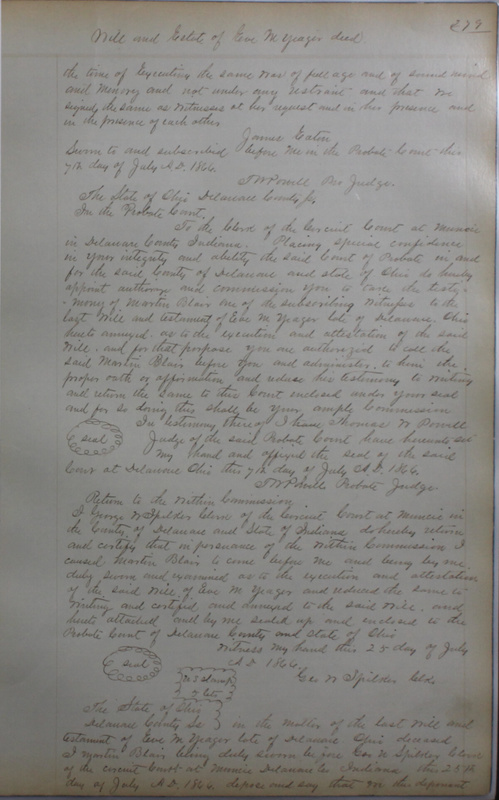 279
Will and Estate of Eve M Yeager decd
the time of Executing the same was of full age and of sound mind
and Memory and not under any restraint and that we
signed the same as Witnesses at her request and in her presence and
in the presence of each other
James Eaton
Sworn to and subscribed before me in the Probate Court this
7th day of July A.D. 1866.
T W Powell Pro Judge.
The State of Ohio Delaware County ss
In the Probate Court.
To the Clerk of the Circuit Court at Muncie
in Delaware County Indiana. Placing special confidence
in your integrity and ability the said Court of Probate in and
for the said County of Delaware and State of Ohio do hereby
appoint authorize and commission you to take the testi-
mony of Martin Blair one of the subscribing witnesses to the
last Will and testament of Eve M Yeager late of Delaware Ohio
hereto annexed, as to the execution and attestation of the said
Will, and for that purpose you are authorized to call the
said Martin Blair before you and administer to him the
proper oath or affirmation and reduce his testimony to writing
and return the same to this Court enclosed under your seal
and for so doing this shall be your ample Commission
In testimony thereof I have Thomas W Powell
seal Judge of the said Probate Court have hereunto set
my hand and affixed the seal of the said
Court at Delaware Ohio this 7th day of July A.D. 1866.
T W Powell Probate Judge
Return to the Within Commission
I George W Spilder Clerk of the Circuit Court at Muncie in
the County of Delaware and State of Indiana do hereby return
and certify that in pursuance of the Within Commission I
caused Martin Blair to come before me and being by me
duly sworn and examined as to the execution and attestation
of the said Will of Eve M Yeager and reduced the same to
writing and certified and annexed to the said Will, and
hereto attached and by me sealed up and enclosed to the
Probate Court of Delaware County and State of Ohio
Witness my hand this 25 day of July
seal A.D. 1866.
U.S stamp Geo W Spilder Clk.
The State of Ohio
Delaware County Ss in the matter of the last Will and
testament of Eve M Yeager late of Delaware Ohio deceased
I Martin Blair being duly sworn before Geo W Spilder Clerk
of the Circuit Court at Muncie Delaware Co Indiana this 25th
day of July A.D. 1866. depose and say that I the deponent